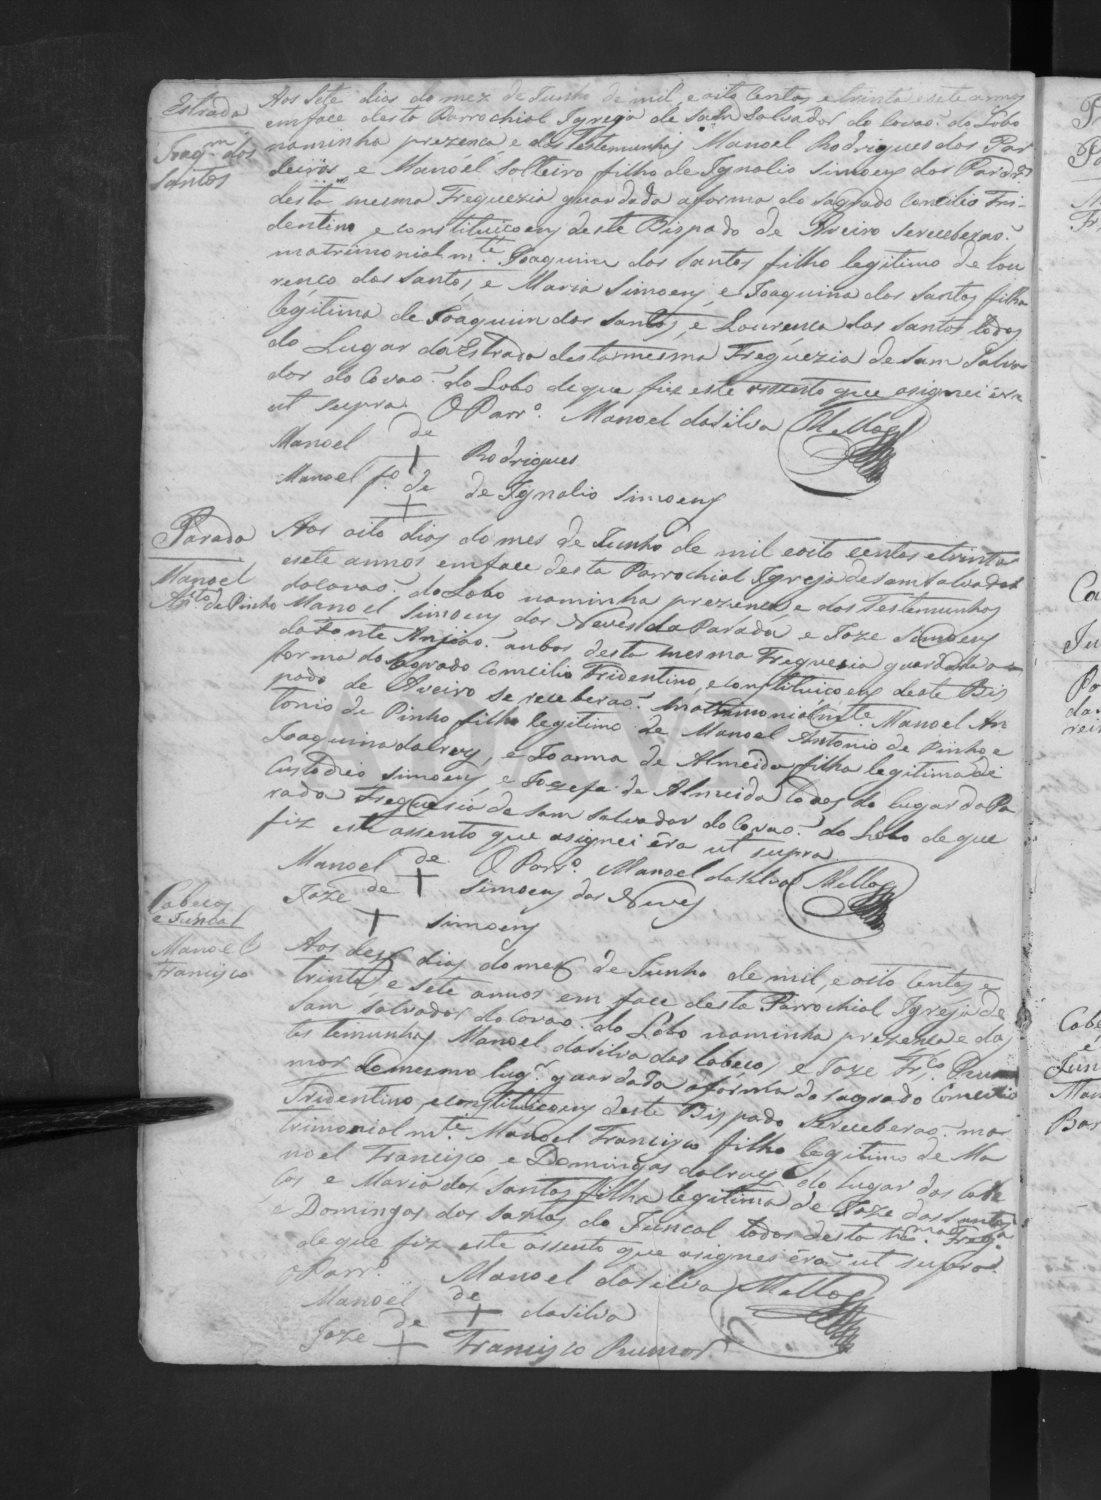 Estrada
Joaqm dos
Santos
Aos Sete dias do mez de Junho de mil e oito centos e trinta e sete annos
em face desta Parrochial Igreja de Sam Salvador do Covaõ do Lobo
na minha prezenca e das Testemunhas Manoel Rodrigues dos Par
deiros e Manoel Solteiro filho de Ignasio Simoens dos Pardros
desta mesma Freguezia guardada a forma do Sagrado Concilio Tri-
dentino e constituicoens deste Bispado de Aveiro se receberaõ
matrimonialmte Joaquim dos Santos filho legitimo de Lou
renco dos Santos, e Maria Simoens, e Joaquina dos Santos filha
legitima de Joaquim dos Santos, e Lourença dos Santos todos
do Lugar da Estrada desta mesma Freguezia de Sam Salva
dor do Covaõ do Lobo de que fiz este assento que asignei êra
ut supra O Parro. Manoel da Silva Mellas
Manoel de + Rodrigues
Manoel fo. de + de Ignasio Simoens
Parada
Manoel
Anto de Pinho
Aos oito dias do mes de Junho de mil e oito centos e trinta
e sete annos em face desta Parrochial Igreja de Sam Salvador
do Covaõ do Lobo na minha prezenca, e das Testemunhas
Manoel Simoens das Neves da Parada e Joze Simoens
da Fonte Anjiaõ anbos desta mesma Freguesia guardada a
forma do Sagrado Concilio Tridentino, e constituicoens deste Bis
pado de Aveiro se receberaõ Matrimonialmte Manoel An
tonio de Pinho filho legitimo de Manoel Antonio de Pinho e
Joaquina da Cruz, e Joanna de Almeida filha legitima de
Custodio Simoens, e Jozefa de Almeida todos do lugar da Pa
rada Freguesia de Sam Salvador do Covaõ do Lobo de que
fiz este assento que asignei êra ut supra
O Parro. Manoel da Silva Mellas
Manoel de + Simoens das Neves
Joze de + Simoens
Cabecos
e Juncal
Manoel
Francisco
Aos des dias do mes de Junho de mil, e oito centos e
trinta, e sete annos em face desta Parrochial Igreja de
Sam Salvador do Covaõ do Lobo na minha prezenca e das
testemunhas Manoel da Silva dos Cabecos, e Joze Frco. Ru
mor do mesmo lugr. guardada a forma do sagrado Concilio
Tridentino, e constituicoens deste Bispado se receberaõ ma
trimonialmte. Manoel Francisco filho legitimo de Ma
noel Francisco, e Domingas da Cruz do lugar dos Cabe
cos e Maria dos Santos filha legitima de Joze dos Santos
e Domingas dos Santos do Juncal todos desta mma. Frega.
de que fiz este assento que asignei êra ut supra
O Parro. Manoel da Silva Mellas
Manoel de + da Silva
Joze de + Francisco Rumor